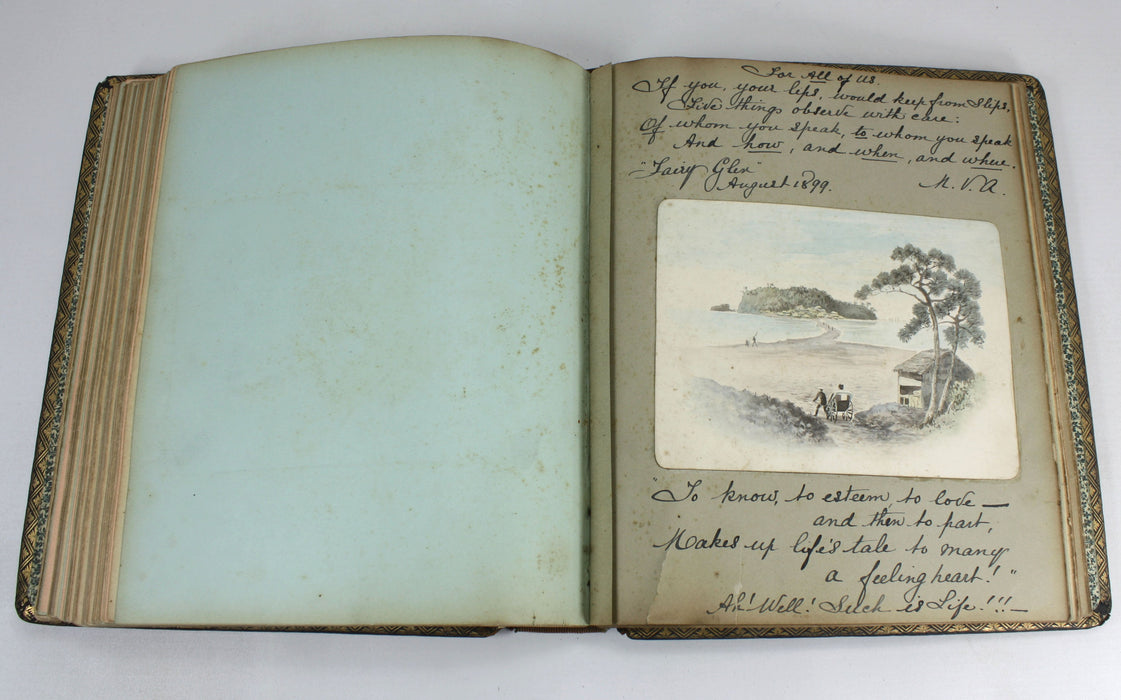 For All of Us.
If you, your lips, would keep from slips,
Five things observe with care:
Of whom you speak, to whom you speak
And how, and when, and where.
"Fairy Glen"
August 1899. M. V. A.
"To know, to esteem to love —
and then to part,
Makes up life's tale to many
a feeling heart!"
Ah! Well! Such is Life!!! —